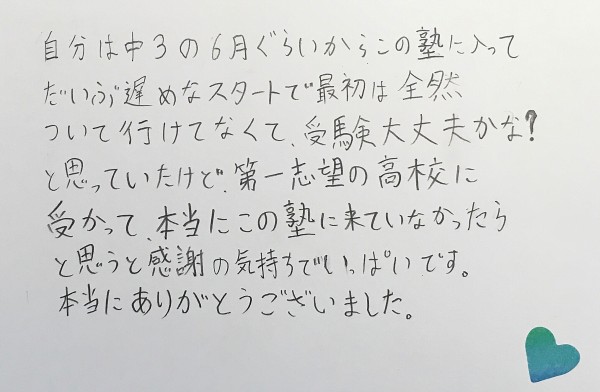 自分は中3の6月ぐらいからこの塾に入って
だいぶ遅めなスタートで最初は全然
ついて行けてなくて、受験大丈夫かな?
と思っていたけど、第一志望の高校に
受かって、本当にこの塾に来ていなかったら
と思うと感謝の気持ちでいっぱいです。
本当にありがとうございました。